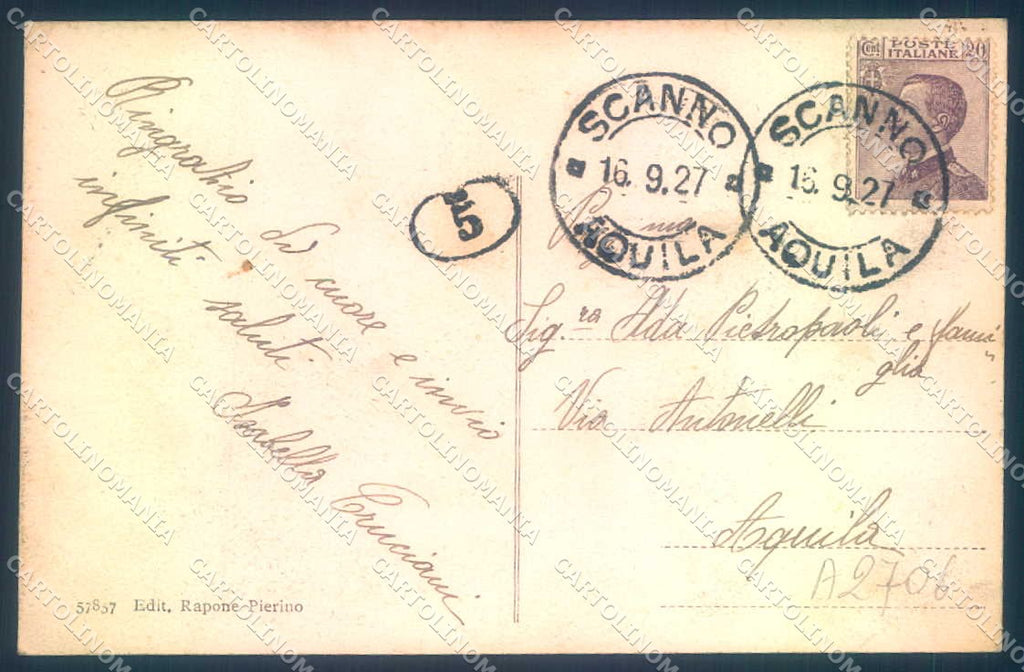 Ringrazio
di cuore e invio
infiniti saluti
Isabella Cruciani
57857 Edit. Rapone Pierino
Cent. POSTE ITALIANE 20
SCANNO
16.9.27
AQUILA
SCANNO
16.9.27
AQUILA
Sig.ra Ada Pietropaoli e fami
glia
Via Antonelli
Aquila
A2706
CARTOLINOMANIA